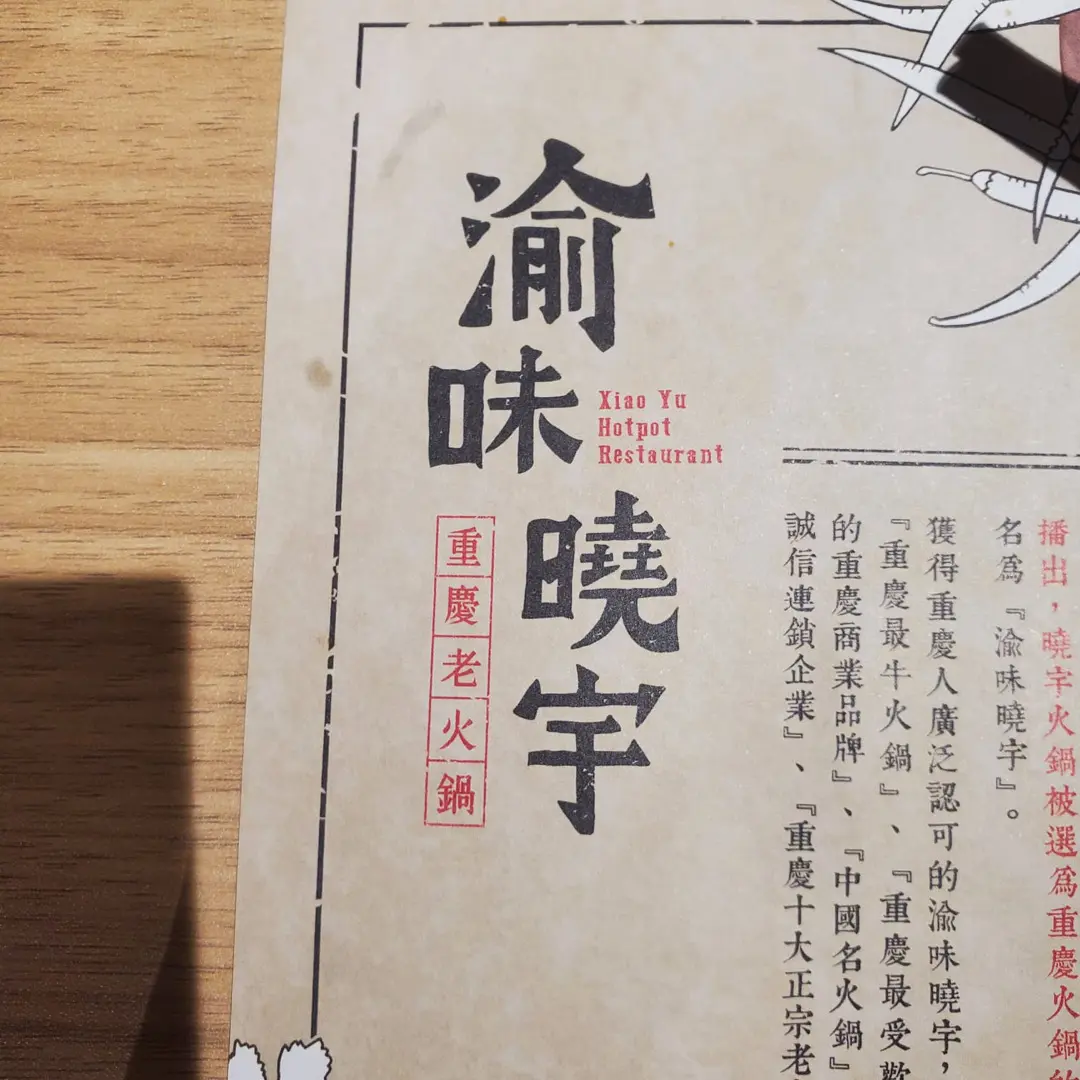 渝味曉宇
Xiao Yu
Hotpot
Restaurant
重慶老火鍋
播出，曉宇火鍋被選為重慶火鍋的
名為『渝味曉宇』。
獲得重慶人廣泛認可的渝味曉宇，
『重慶最牛火鍋』、『重慶最受歡
的重慶商業品牌』、『中國名火鍋』
誠信連鎖企業』、『重慶十大正宗老